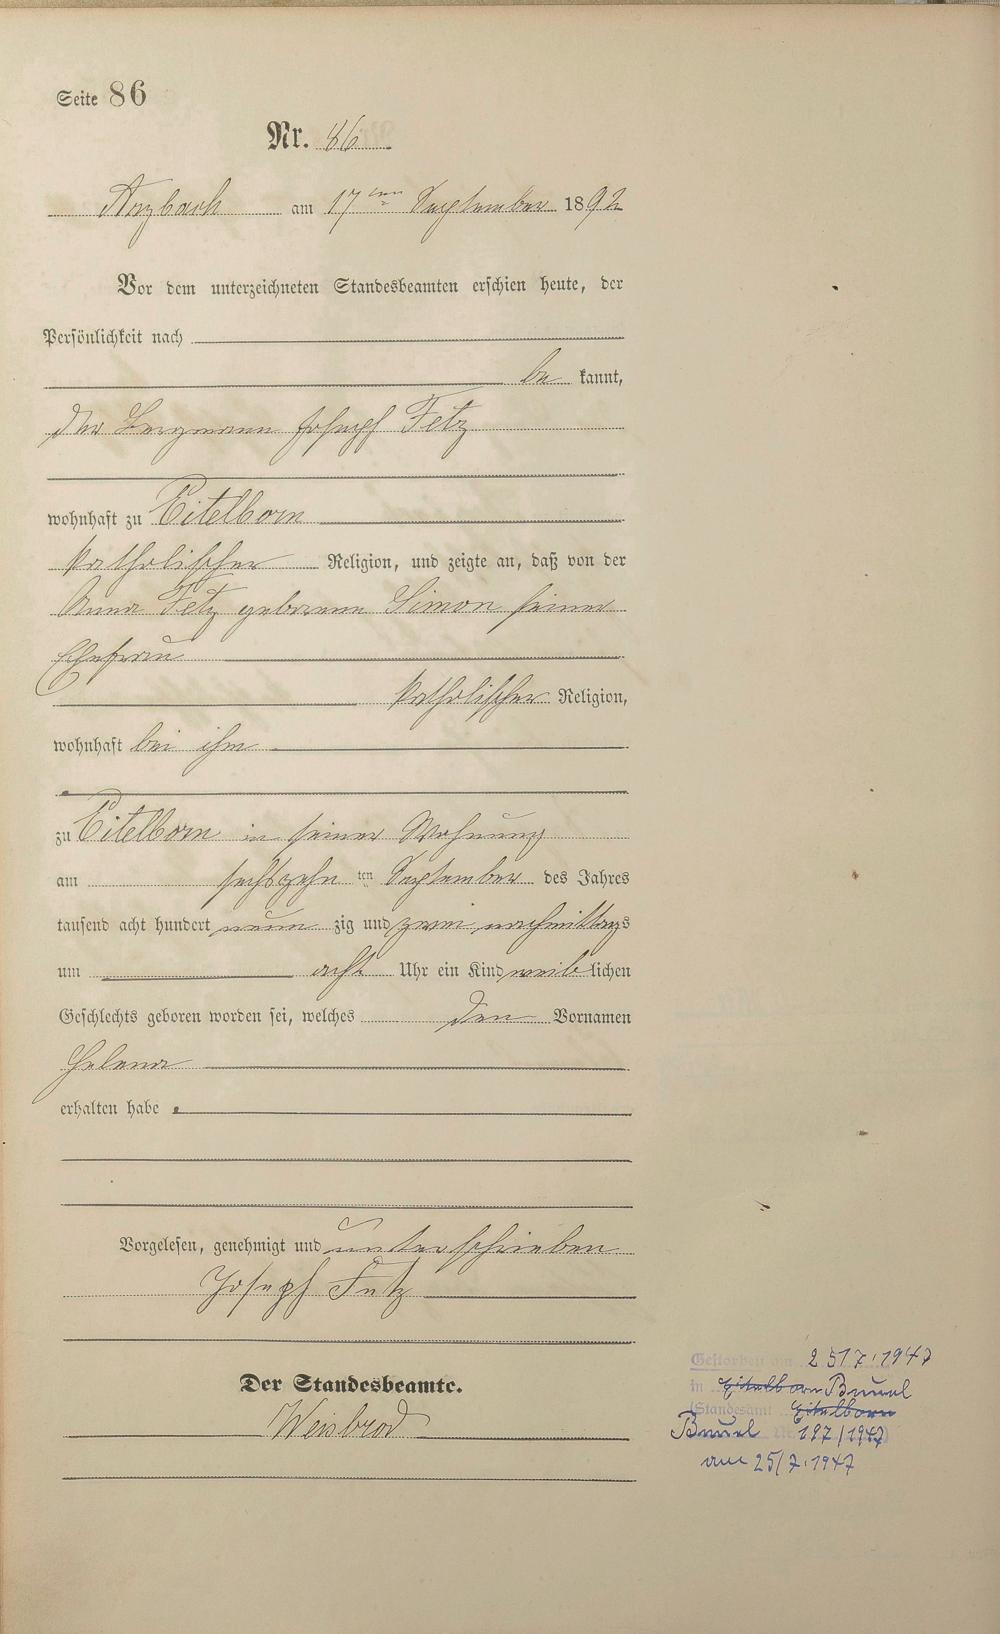 Seite 86
Nr. 86
Arzbach am 17ten September 1892
Vor dem unterzeichneten Standesbeamten erschien heute, der
Persönlichkeit nach
be kannt,
der Bergmann Joseph Fetz
wohnhaft zu Eitelborn
katholischer Religion, und zeigte an, daß von der
Anna Fetz geborenen Simon seiner
Ehefrau
katholischer Religion,
wohnhaft bei ihm
zu Eitelborn in seiner Wohnung
am sechszehn ten September des Jahres
tausend acht hundert neun zig und zwei nachmittags
um acht Uhr ein Kind weib lichen
Geschlechts geboren worden sei, welches den Vornamen
Helena
erhalten habe.
Vorgelesen, genehmigt und unterschrieben
Joseph Fetz
Der Standesbeamte.
Weisbrod
Gestorben am 25/7.1947
in Eitelborn Beuel
(Standesamt Eitelborn
Beuel Nr. 197/1947)
am 25/7.1947